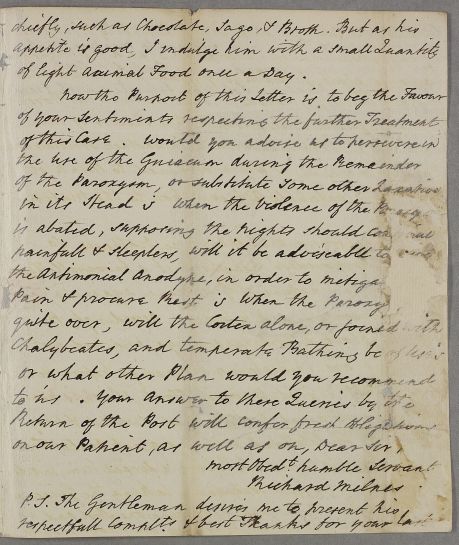 chiefly, such as Chocolate, Sago, & Broth. But as his
appetite is good, I indulge him with a small Quantity
of light Animal Food once a Day.
Now the Purport of this Letter is, to beg the Favour
of your Sentiments respecting the further Treatment
of this Case. would you advise us to persevere in
the use of the Guiacum during the Remainder
of the Paroxysm, or substitute some other Laxative
in its Stead? when the violence of the
is abated, supposing the Nights should
painfull & sleepless, will it be adviseable to
the Antimonial Anodyne, in order to mitiga
Pain & procure Rest? when the Paroxy
quite over, will the Cortex alone, or joined with
Chalybeates, and temperate Bathing be of use?
or what other Plan would you recommend
to us. Your Answer to these Queries by the
Return of the Post will confer fresh Obligations
on our Patient, as well as on, Dear Sir,
most Obedt. humble Servant
Richard Milnes
P.S. The Gentleman desires me to present his
respectfull Complts. & best Thanks for your last